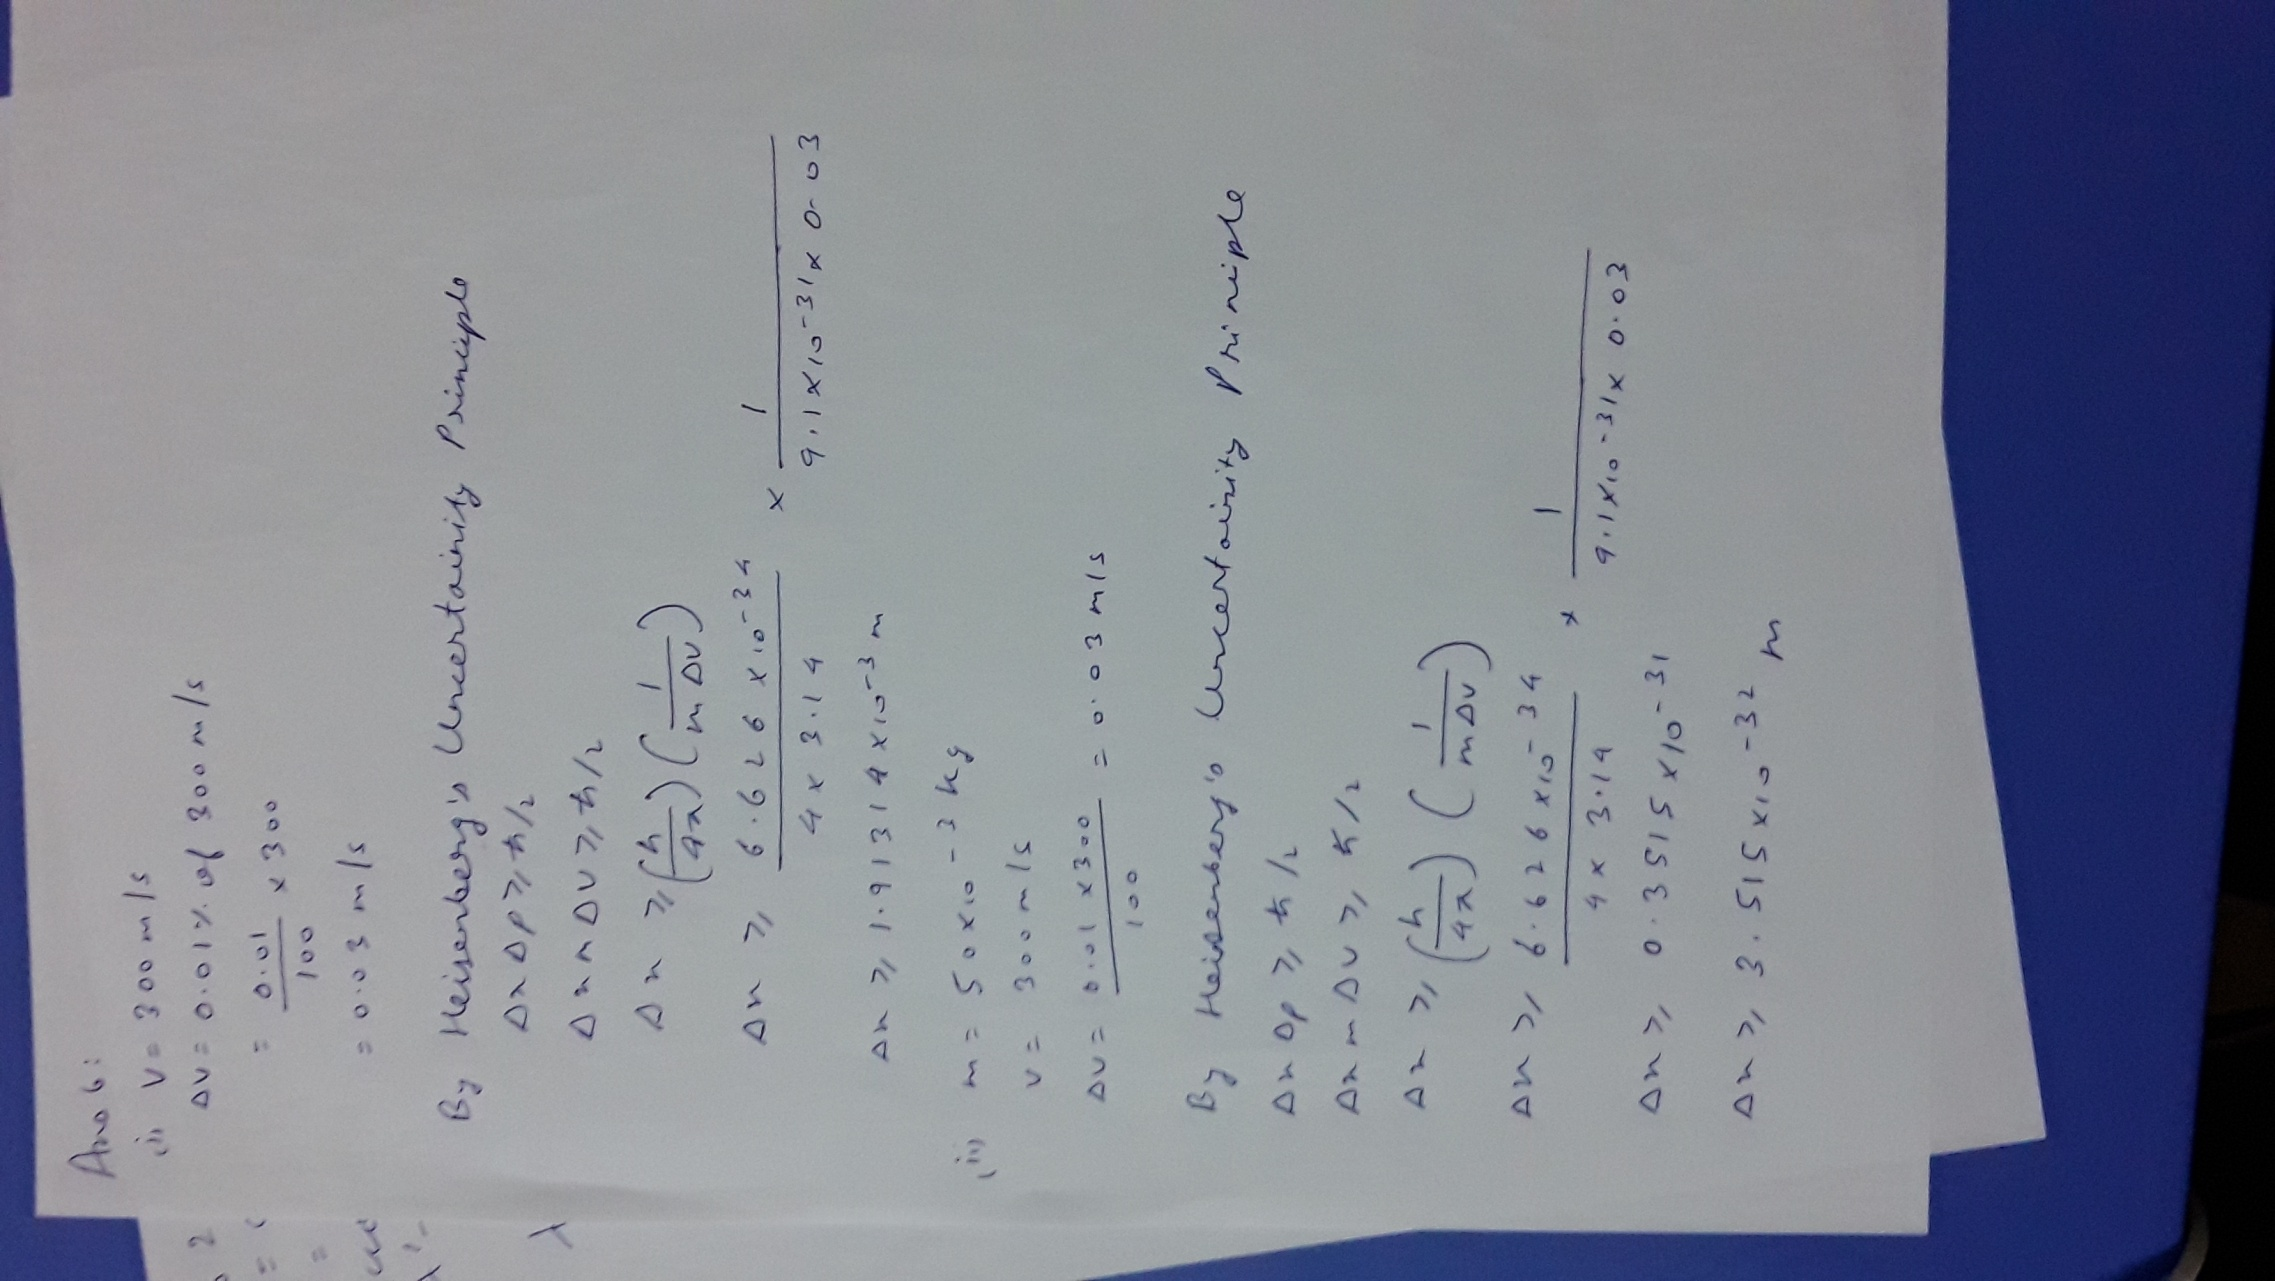 Ans 6:
(i) v = 300 m/s
Δv = 0.01% of 300 m/s
= 0.01/100 x 300
= 0.03 m/s
By Heisenberg's Uncertainity Principle
Δx Δp ≥ ℏ/2
Δx m Δv ≥ ℏ/2
Δx ≥ (h/4π) (1/mΔv)
Δx ≥ 6.626 x 10^-34 / 4 x 3.14 x 1 / 9.1 x 10^-31 x 0.03
Δx ≥ 1.91314 x 10^-3 m
(ii) m = 50 x 10^-3 kg
v = 300 m/s
Δv = 0.01 x 300 / 100 = 0.03 m/s
By Heisenberg's Uncertainity Principle
Δx Δp ≥ ℏ/2
Δx m Δv ≥ ℏ/2
Δx ≥ (h/4π) (1/mΔv)
Δx ≥ 6.626 x 10^-34 / 4 x 3.14 x 1 / 9.1 x 10^-31 x 0.03
Δx ≥ 0.3515 x 10^-31
Δx ≥ 3.515 x 10^-32 m
2
=
=
λ